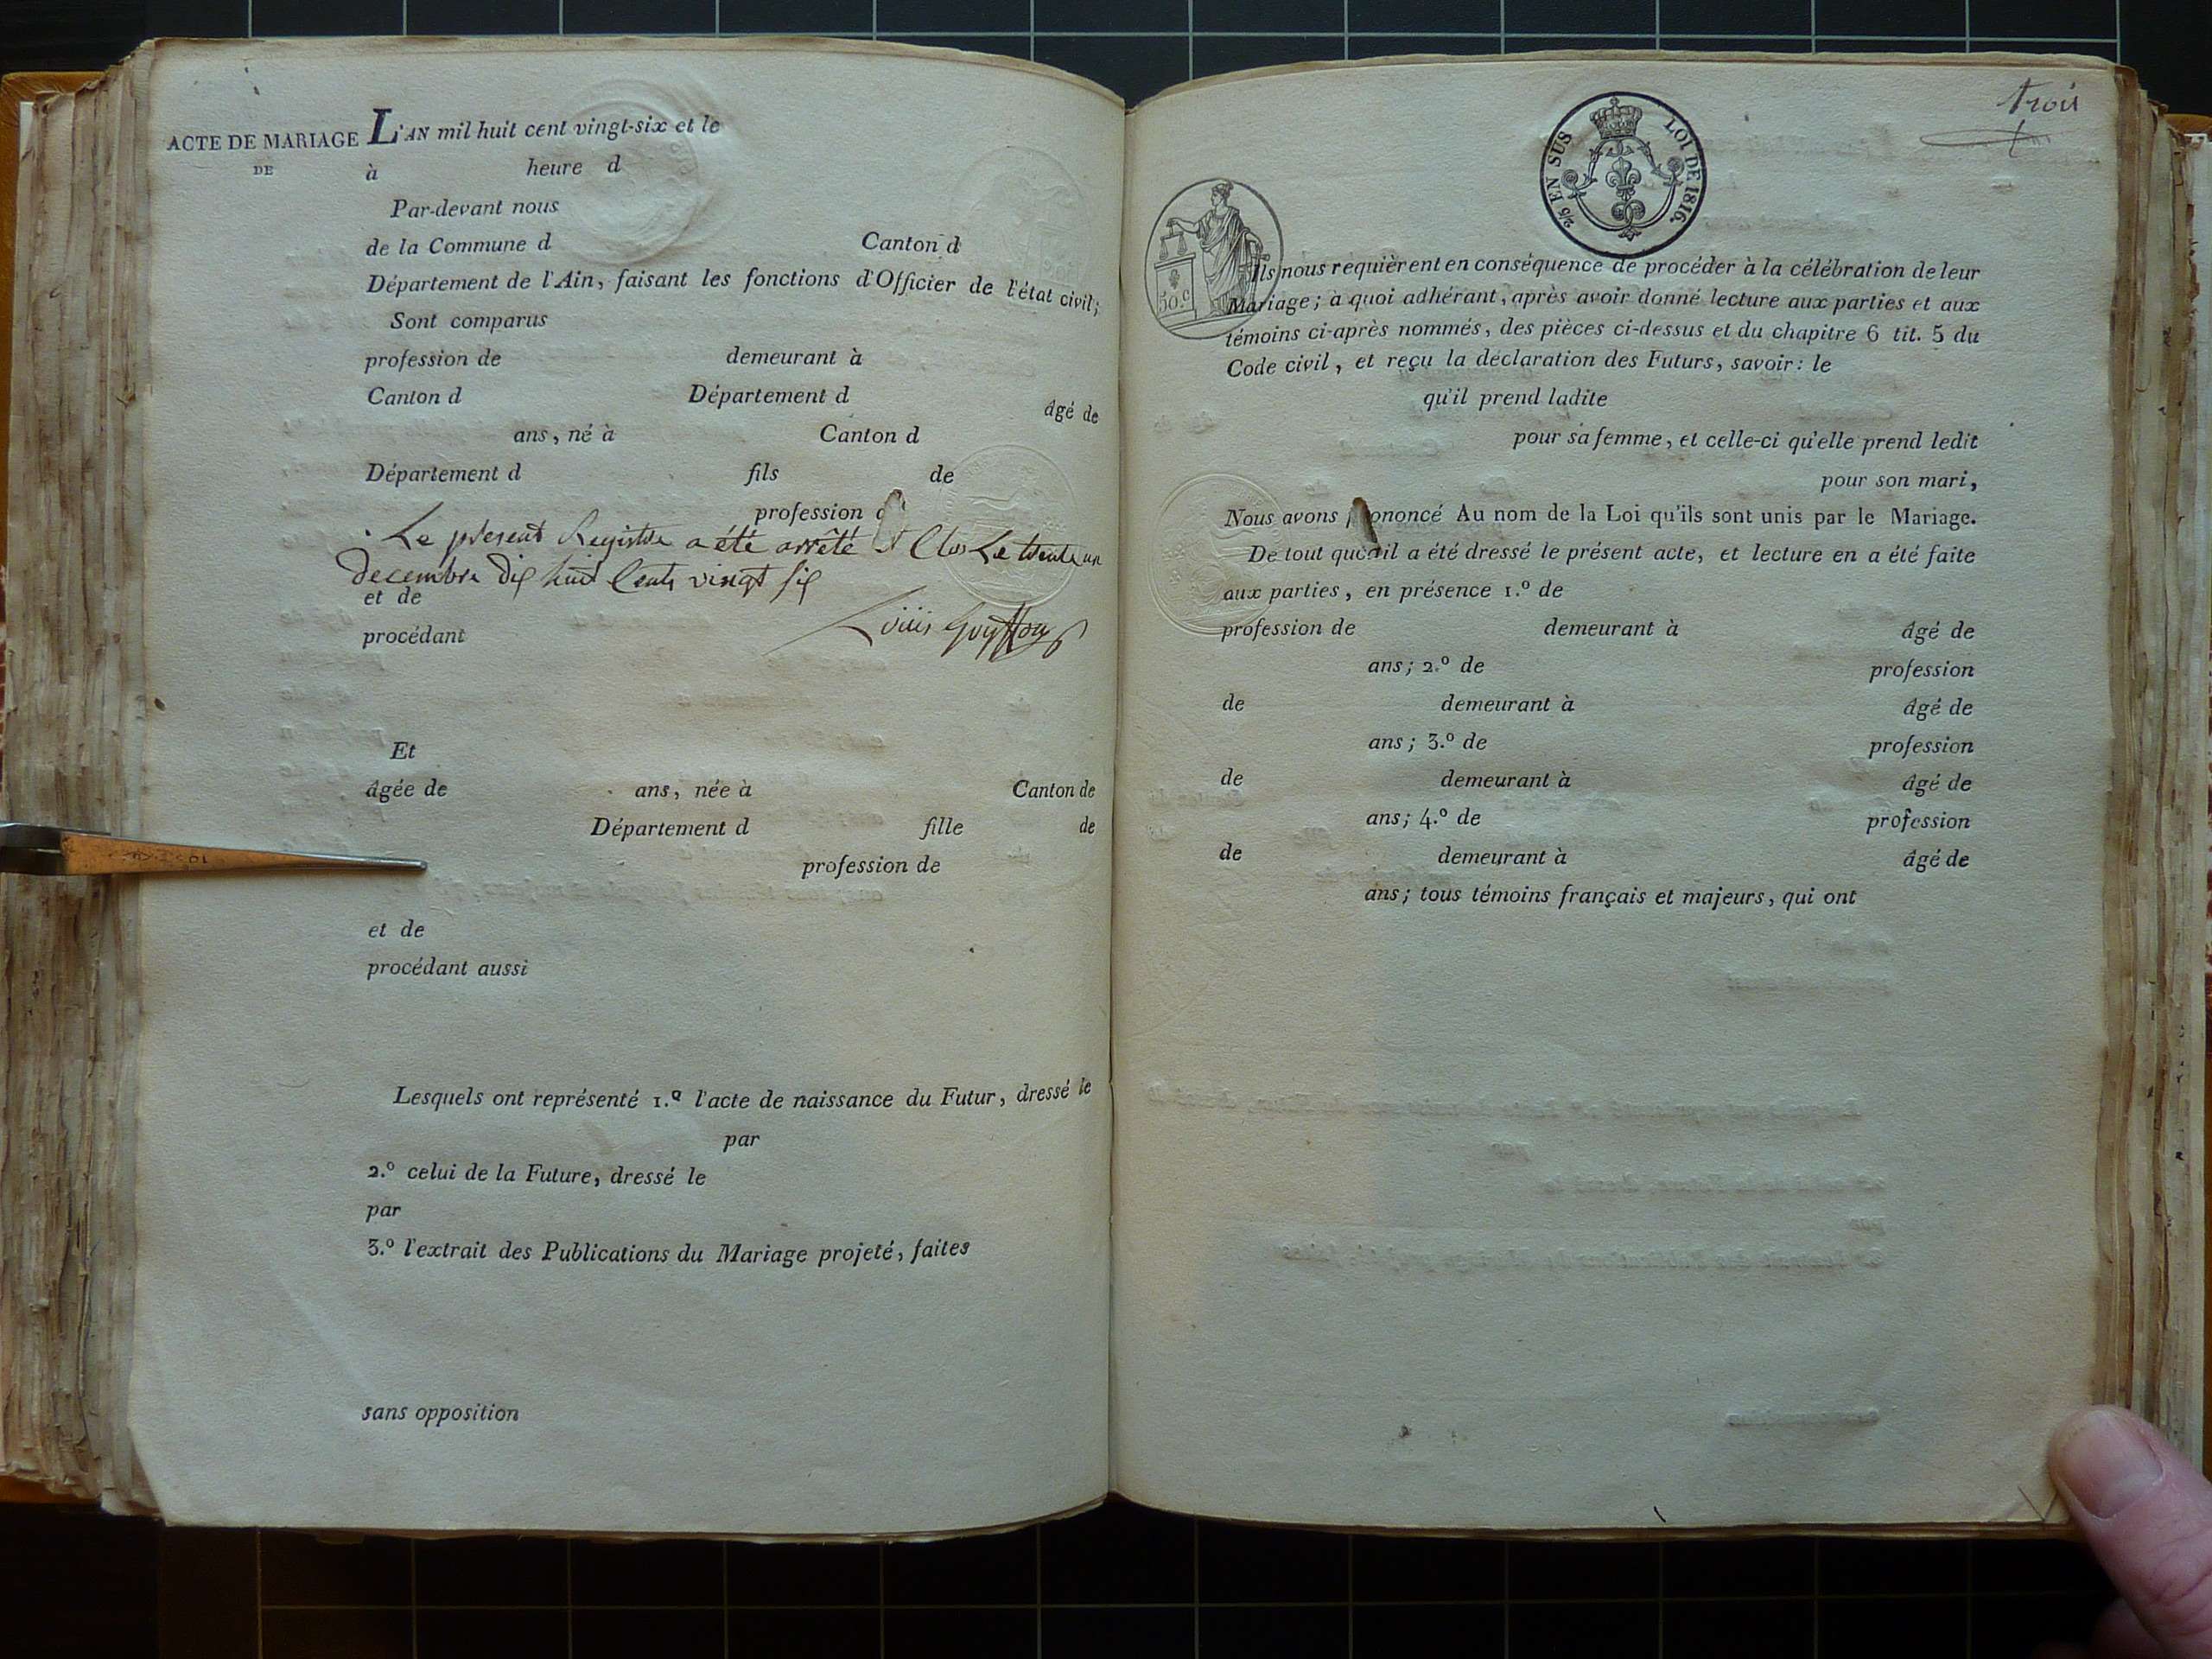 ACTE DE MARIAGE
DE
L'AN mil huit cent vingt-six et le
à heure d
Par-devant nous
de la Commune d Canton d
Département de l'Ain, faisant les fonctions d'Officier de l'état civil;
Sont comparus
profession de demeurant à
Canton d Département d âgé de
ans, né à Canton d
Département d fils de
profession d
Le présent Registre a été arrêté et Clos Le trente un
decembre dix huit Cents vingt six
et de
procédant
Louis
Et
âgée de ans, née à Canton de
Département d fille de
profession de
et de
procédant aussi
Lesquels ont représenté 1.º l'acte de naissance du Futur, dressé le
par
2.º celui de la Future, dressé le
par
3.º l'extrait des Publications du Mariage projeté, faites
sans opposition
trois
EN SUS LOI DE 1816.
50.c
Ils nous requièrent en conséquence de procéder à la célébration de leur
Mariage; à quoi adhérant, après avoir donné lecture aux parties et aux
témoins ci-après nommés, des pièces ci-dessus et du chapitre 6 tit. 5 du
Code civil, et reçu la déclaration des Futurs, savoir: le
qu'il prend ladite
pour sa femme, et celle-ci qu'elle prend ledit
pour son mari,
Nous avons prononcé Au nom de la Loi qu'ils sont unis par le Mariage.
De tout quoi il a été dressé le présent acte, et lecture en a été faite
aux parties, en présence 1.º de
profession de demeurant à âgé de
ans; 2.º de profession
de demeurant à âgé de
ans; 3.º de profession
de demeurant à âgé de
ans; 4.º de profession
de demeurant à âgé de
ans; tous témoins français et majeurs, qui ont